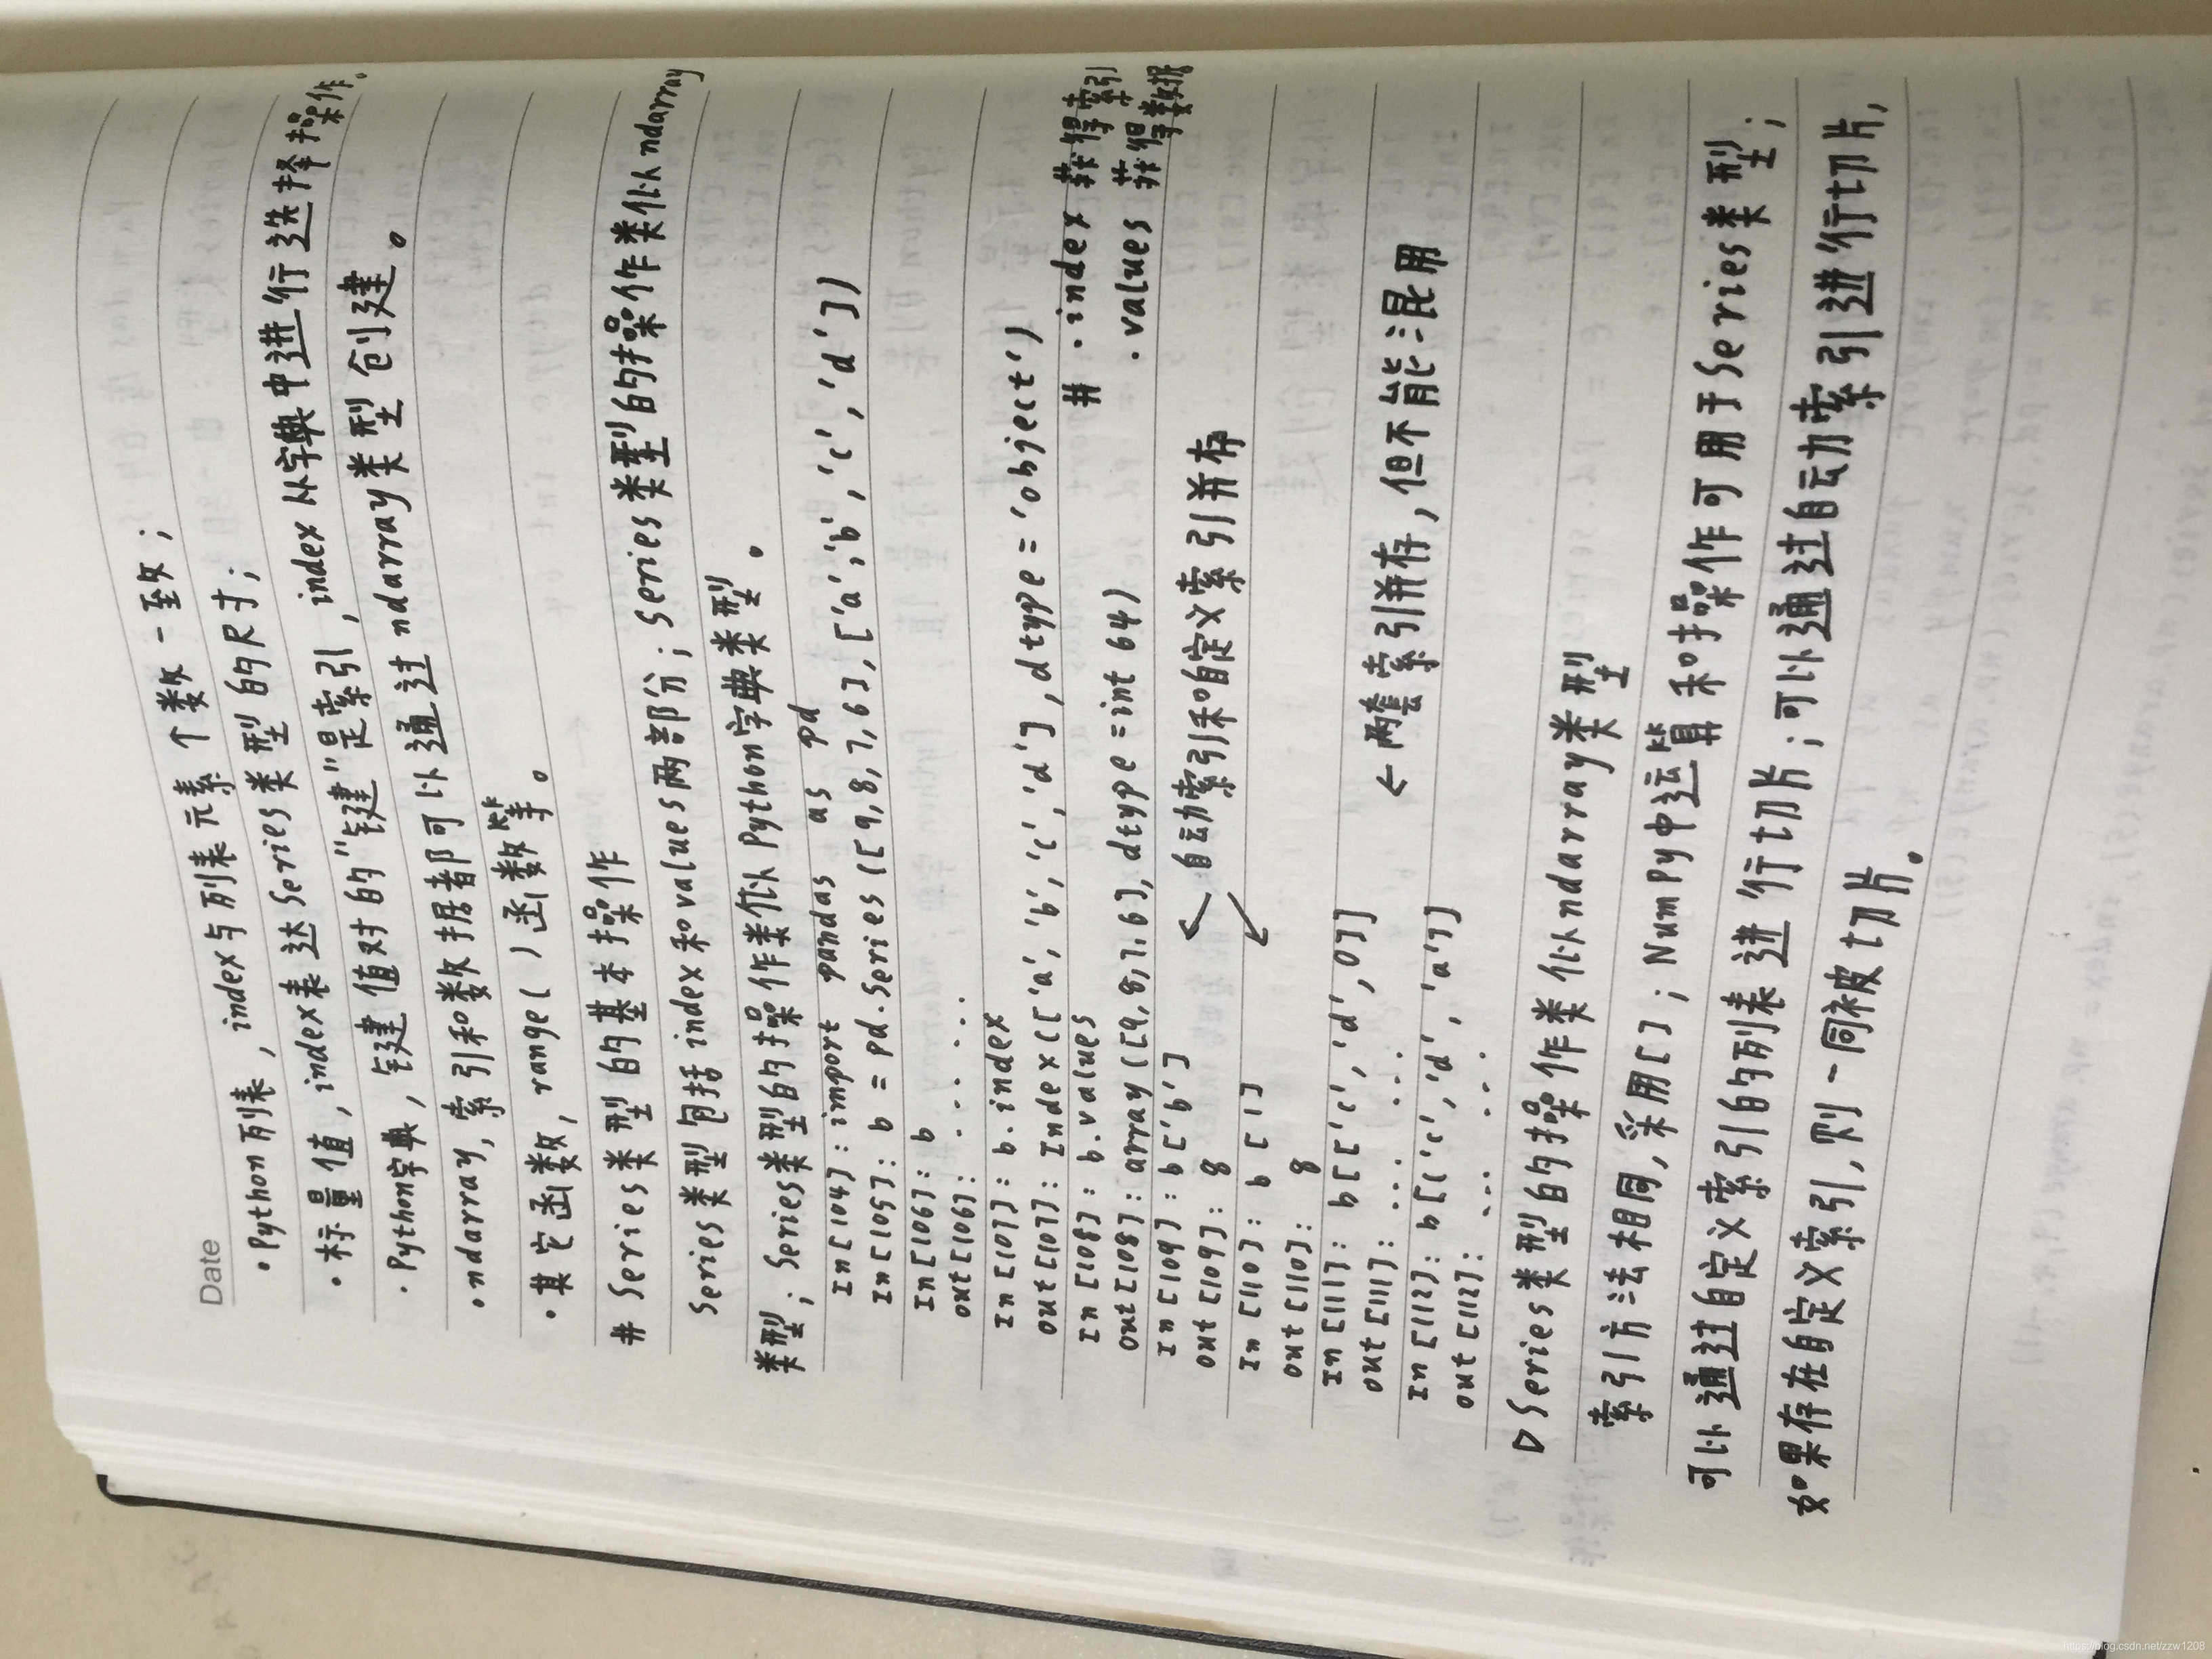 Date
·Python列表，index与列表元素个数一致；
·标量值，index表达Series类型的尺寸；
·Python字典，键值对的"键"是索引，index从字典中进行选择操作。
·ndarray，索引和数据都可以通过ndarray类型创建。
·其它函数，range()函数等。
# Series类型的基本操作
Series类型包括index和values两部分；Series类型的操作类似ndarray
类型；Series类型的操作类似Python字典类型。
In[104]: import pandas as pd
In[105]: b = pd.Series([9,8,7,6],['a','b','c','d'])
In[106]: b
out[106]: ... ...
In[107]: b.index
out[107]: Index(['a','b','c','d'],dtype='object')
# .index 获得索引
In[108]: b.values
.values 获得数据
out[108]: array([9,8,7,6],dtype=int64)
In[109]: b['b']
out[109]: 8
← 自动索引和自定义索引并存
In[110]: b[1]
out[110]: 8
In[111]: b[['c','d',0]]
out[111]: ... ...
← 两套索引并存，但不能混用
In[112]: b[['c','d','a']]
out[112]: ... ...
▷Series类型的操作类似ndarray类型
索引方法相同，采用[]；NumPy中运算和操作可用于Series类型；
可以通过自定义索引的列表进行切片；可以通过自动索引进行切片，
如果存在自定义索引，则一同被切片。
https://blog.csdn.net/zzw1208